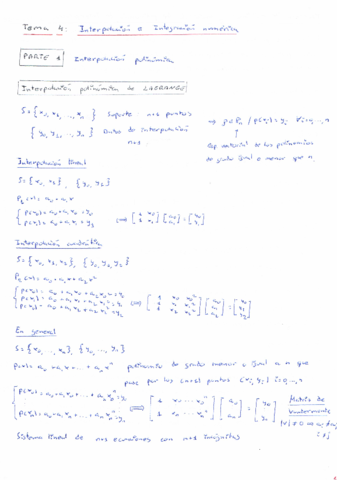 Tema 4: Interpolación e integración numérica
PARTE 1 Interpolación polinómica
Interpolación polinómica de LAGRANGE
S = {x₀, x₁, ..., xₙ} Soporte n+1 puntos ⇒ p ∈ Pₙ / p(xᵢ) = yᵢ ∀i=0,...,n
{y₀, y₁, ..., yₙ} Datos de interpolación n+1
Esp. vectorial de los polinomios de grado igual o menor que n.
Interpolación lineal
S = {x₀, x₁}, {y₀, y₁}
P₁(x) = a₀ + a₁x
{ p(x₀) = a₀ + a₁x₀ = y₀
{ p(x₁) = a₀ + a₁x₁ = y₁ ⟺ [1 x₀; 1 x₁] [a₀; a₁] = [y₀; y₁]
Interpolación cuadrática
S = {x₀, x₁, x₂}, {y₀, y₁, y₂}
P₂(x) = a₀ + a₁x + a₂x²
{ p(x₀) = a₀ + a₁x₀ + a₂x₀² = y₀
{ p(x₁) = a₀ + a₁x₁ + a₂x₁² = y₁ ⟺ [1 x₀ x₀²; 1 x₁ x₁²; 1 x₂ x₂²] [a₀; a₁; a₂] = [y₀; y₁; y₂]
{ p(x₂) = a₀ + a₁x₂ + a₂x₂² = y₂
En general
S = {x₀, ..., xₙ}, {y₀, ..., yₙ}
p(x) = a₀ + a₁x + ... + aₙxⁿ polinomio de grado menor o igual a n que
pase por los (n+1) puntos (xᵢ, yᵢ) i=0,...,n
{ p(x₀) = a₀ + a₁x₀ + ... + aₙx₀ⁿ = y₀
{ p(xₙ) = a₀ + a₁xₙ + ... + aₙxₙⁿ = yₙ ⟺ [1 x₀ ... x₀ⁿ; 1 xₙ ... xₙⁿ] [a₀; aₙ] = [y₀; yₙ]
Matriz de Vandermonde
|V| ≠ 0 ⟺ xᵢ ≠ xⱼ
i ≠ j
Sistema lineal de n+1 ecuaciones con n+1 incógnitas